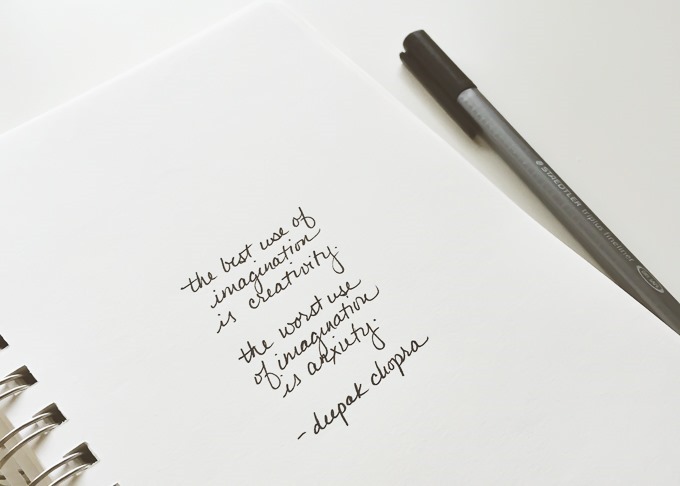 the best use of
imagination
is creativity.
the worst use
of imagination
is anxiety.
- deepak chopra
STAEDTLER triplus fineliner